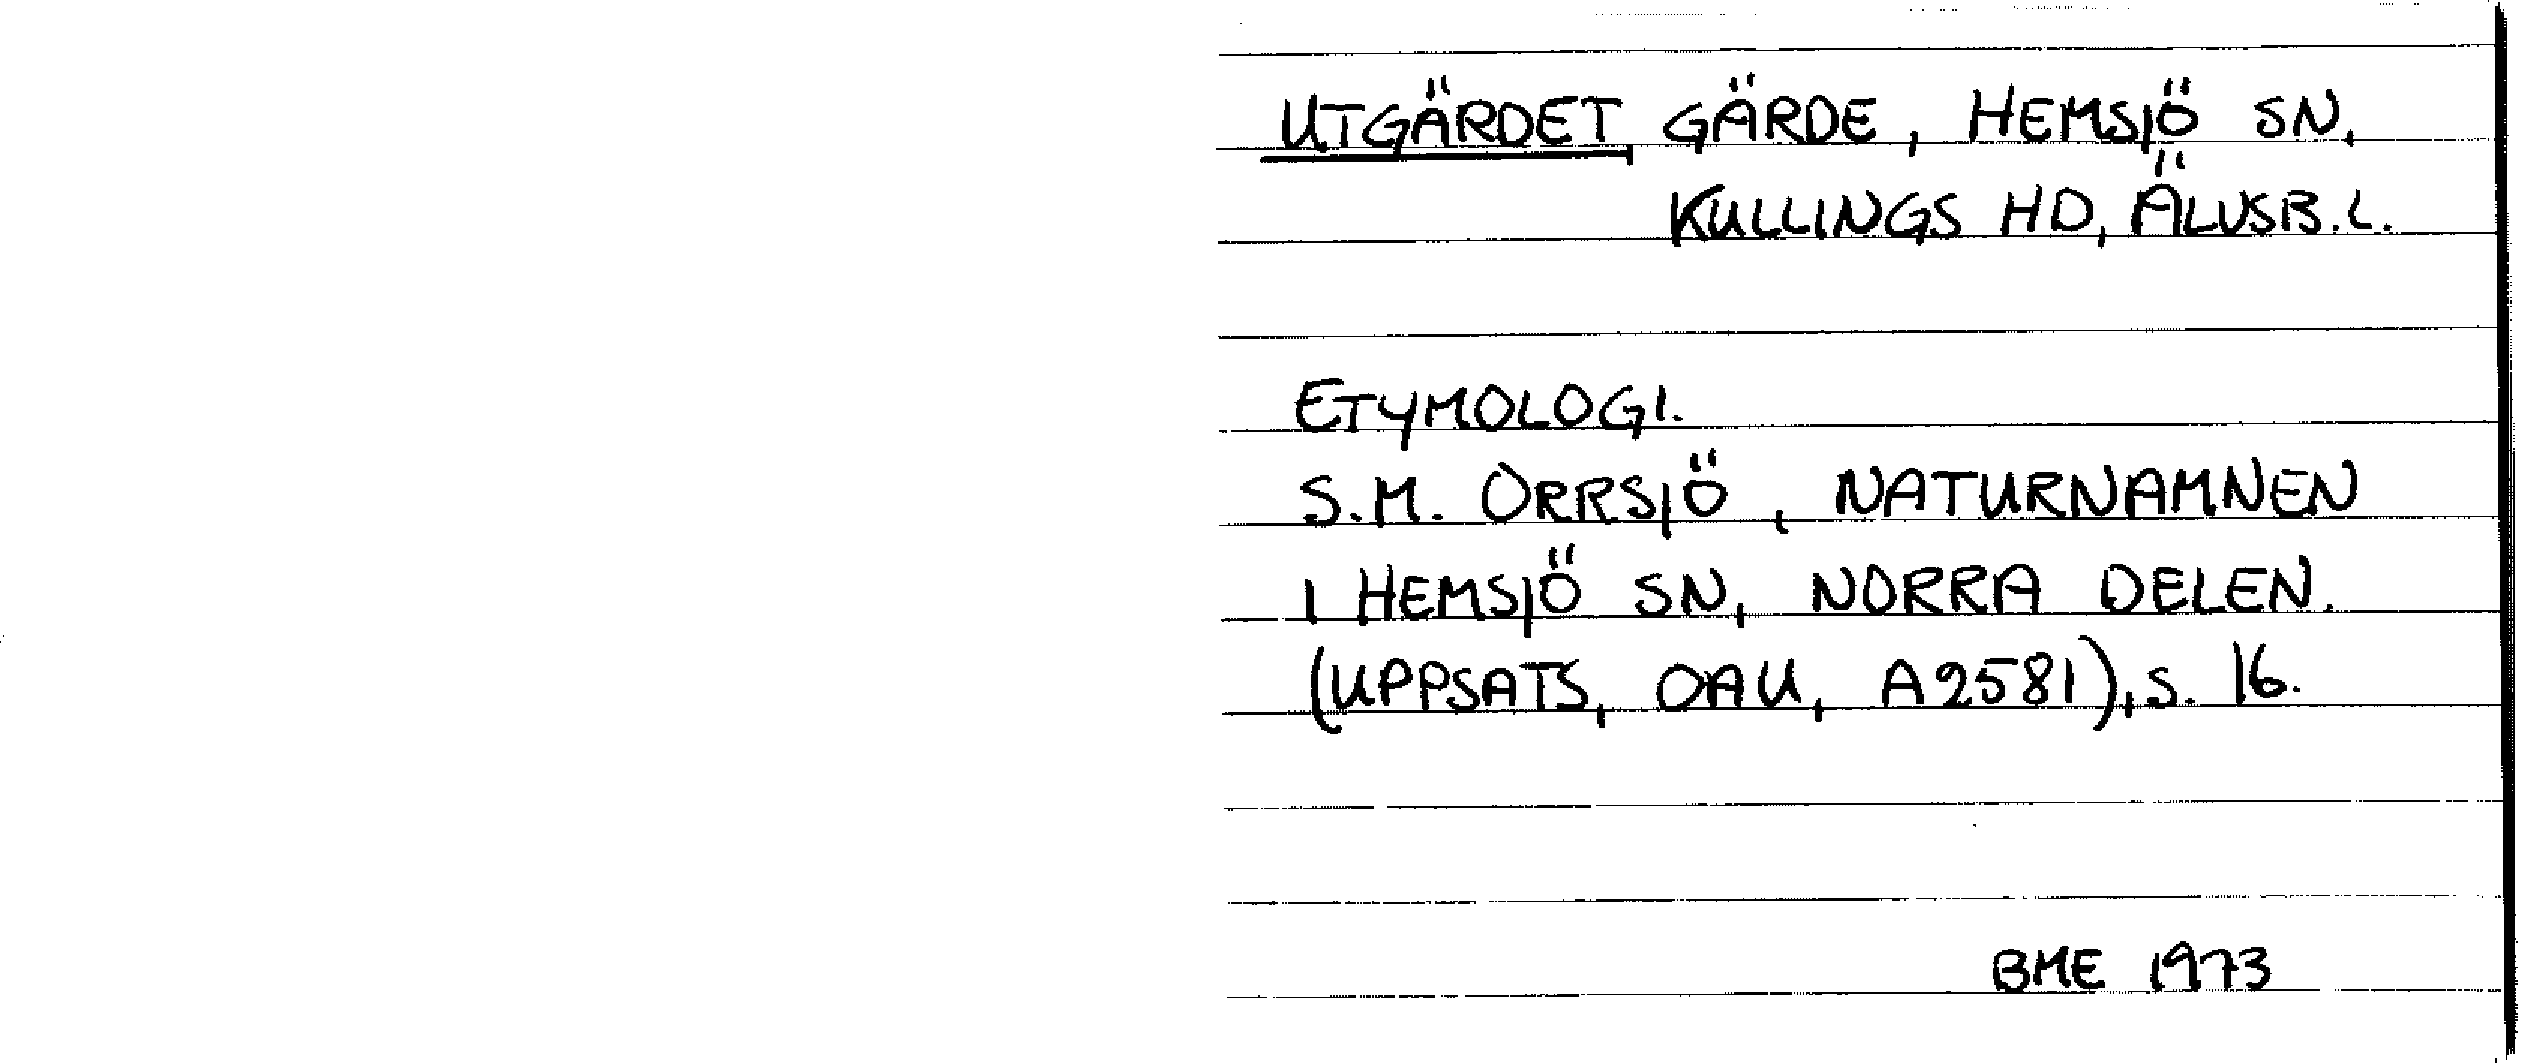 UTGÄRDET GÄRDE, HEMSJÖ SN,
KULLINGS HD, ÄLVSB. L.
ETYMOLOGI.
S.M. ORRSJÖ, NATURNAMNEN
I HEMSJÖ SN, NORRA DELEN.
(UPPSATS, OAU, A2581), S. 16.
BME 1973